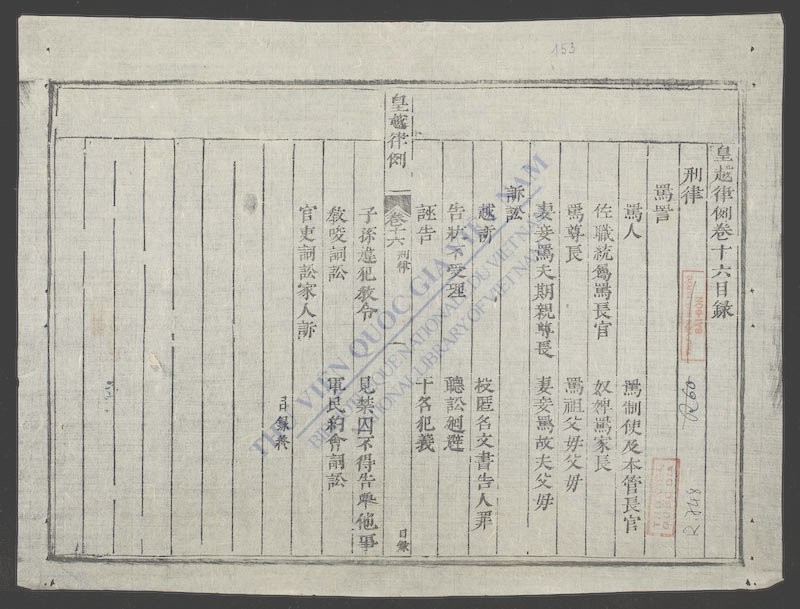 皇越律例卷十六目錄
刑律
罵詈
罵人 罵制使及本管長官
佐職統屬罵長官 奴婢罵家長
罵尊長 罵祖父母父母
妻妾罵夫期親尊長 妻妾罵故夫父母
訴訟
越訴 投匿名文書告人罪
告狀不受理 聽訟迴避
誣告 干名犯義
皇越律例 卷十六 刑律 一 目錄
子孫違犯教令 見禁囚不得告舉他事
教唆詞訟 軍民約會詞訟
官吏詞訟家人訴
目錄終
153
R.848
THƯ VIỆN QUỐC GIA VIỆT NAM
BIBLIOTHÈQUE NATIONALE DU VIETNAM
NATIONAL LIBRARY OF VIETNAM